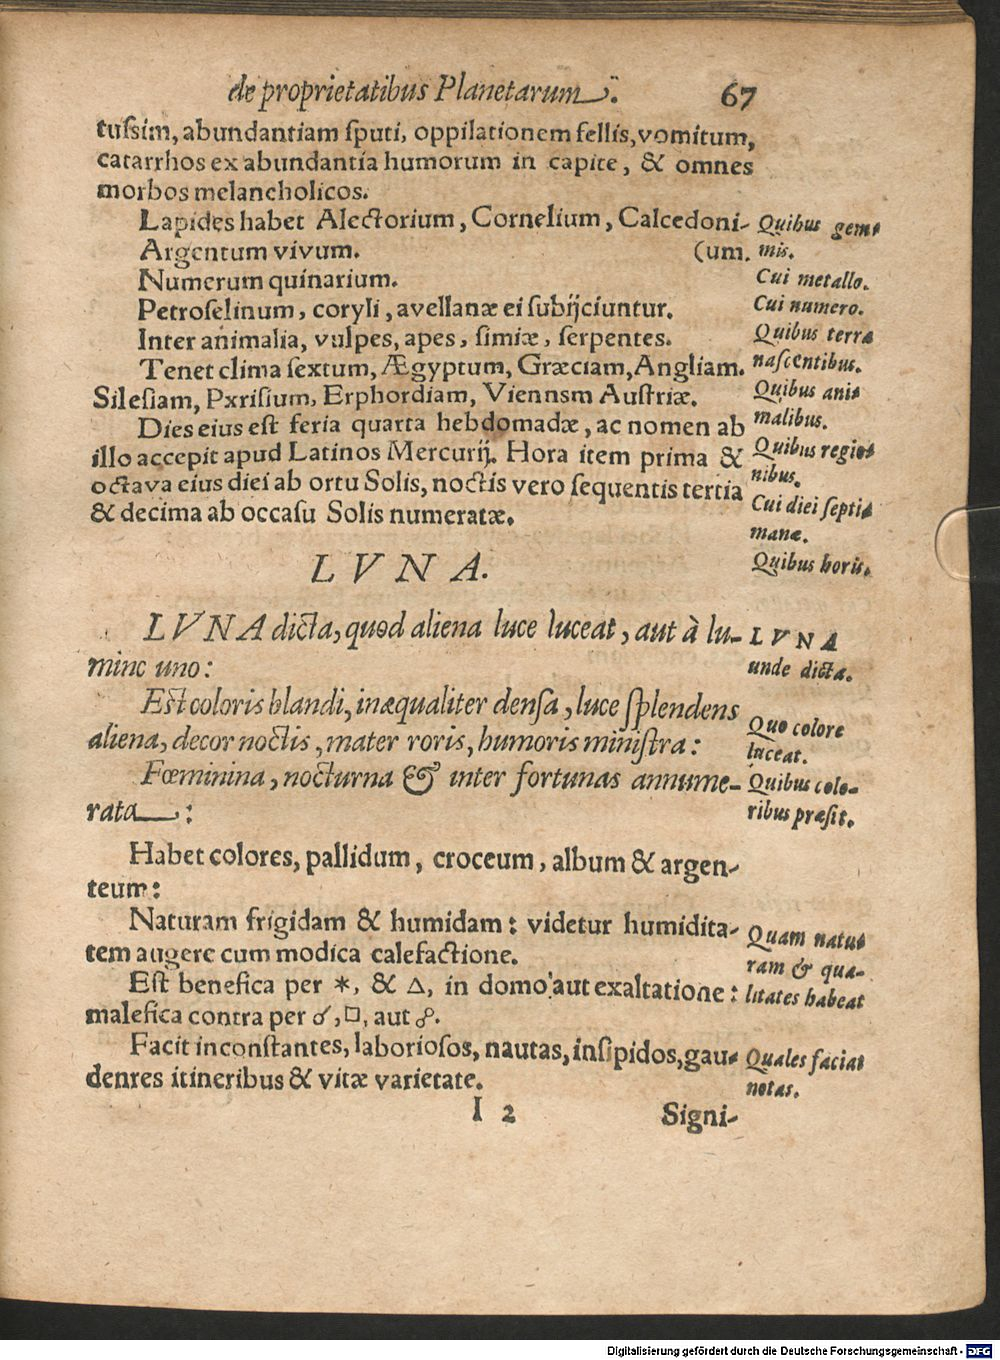 de proprietatibus Planetarum. 67
tussim, abundantiam sputi, oppilationem fellis, vomitum,
catarrhos ex abundantia humorum in capite, & omnes
morbos melancholicos.
Lapides habet Alectorium, Cornelium, Calcedoni-
Argentum vivum. (um.
Numerum quinarium.
Petroselinum, coryli, avellanæ ei subijciuntur.
Inter animalia, vulpes, apes, simiæ, serpentes.
Tenet clima sextum, Ægyptum, Græciam, Angliam.
Silesiam, Pxrisium, Erphordiam, Viennsm Austriæ.
Dies eius est feria quarta hebdomadæ, ac nomen ab
illo accepit apud Latinos Mercurij. Hora item prima &
octava eius diei ab ortu Solis, noctis vero sequentis tertia
& decima ab occasu Solis numeratæ.
Quibus gem-
mis.
Cui metallo.
Cui numero.
Quibus terra
nascentibus.
Quibus ani-
malibus.
Quibus regio-
nibus.
Cui diei septi-
manæ.
Quibus horis.
LVNA.
LVNA dicta, quod aliena luce luceat, aut à lu-
mine uno:
Est coloris blandi, inæqualiter densa, luce splendens
aliena, decor noctis, mater roris, humoris ministra:
Fœminina, nocturna & inter fortunas annume-
rata:
Habet colores, pallidum, croceum, album & argen-
teum:
Naturam frigidam & humidam: videtur humidita-
tem augere cum modica calefactione.
Est benefica per ⚹, & △, in domo aut exaltatione:
malefica contra per ☌, □, aut ☍.
Facit inconstantes, laboriosos, nautas, insipidos, gau-
dentes itineribus & vitæ varietate.
LVNA
unde dicta.
Quo colore
luceat.
Quibus colo-
ribus præsit.
Quam natu-
ram & qua-
litates habeat
Quales faciat
notas.
I 2 Signi-
Digitalisierung gefördert durch die Deutsche Forschungsgemeinschaft - DFG